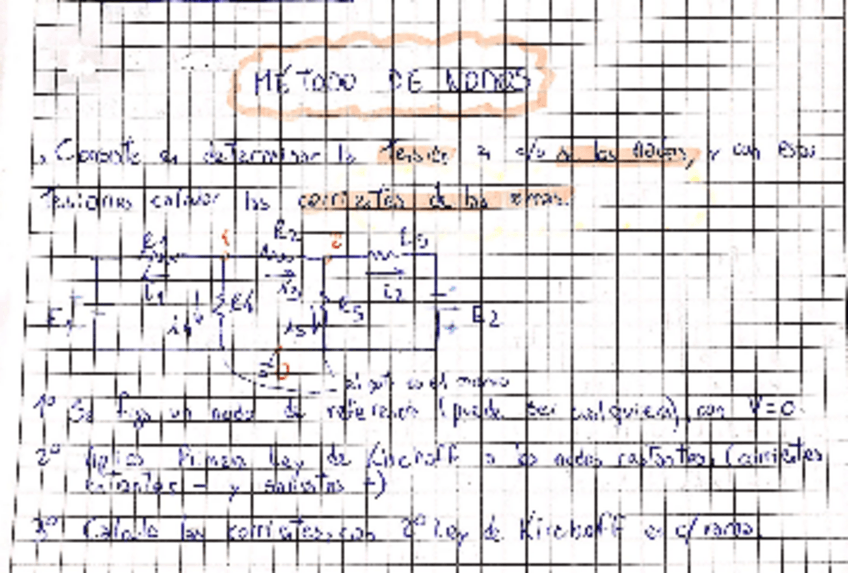 MÉTODO DE NODOS
Consiste en determinar la tensión en c/u de los nodos, y con estas
tensiones calcular las corrientes de las ramas.
R1 1 R2 2 R3
i1 i2 i3
E1 i4 R4 i5 R5 E2
0
el mismo
1º Se fija un nodo de referencia (puede ser cualquiera), con V=0
2º Aplico Primera Ley de Kirchoff a los nodos restantes. (corrientes
entrantes - y salientes +)
3º Calculo las corrientes, con 2º Ley de Kirchoff en c/rama.